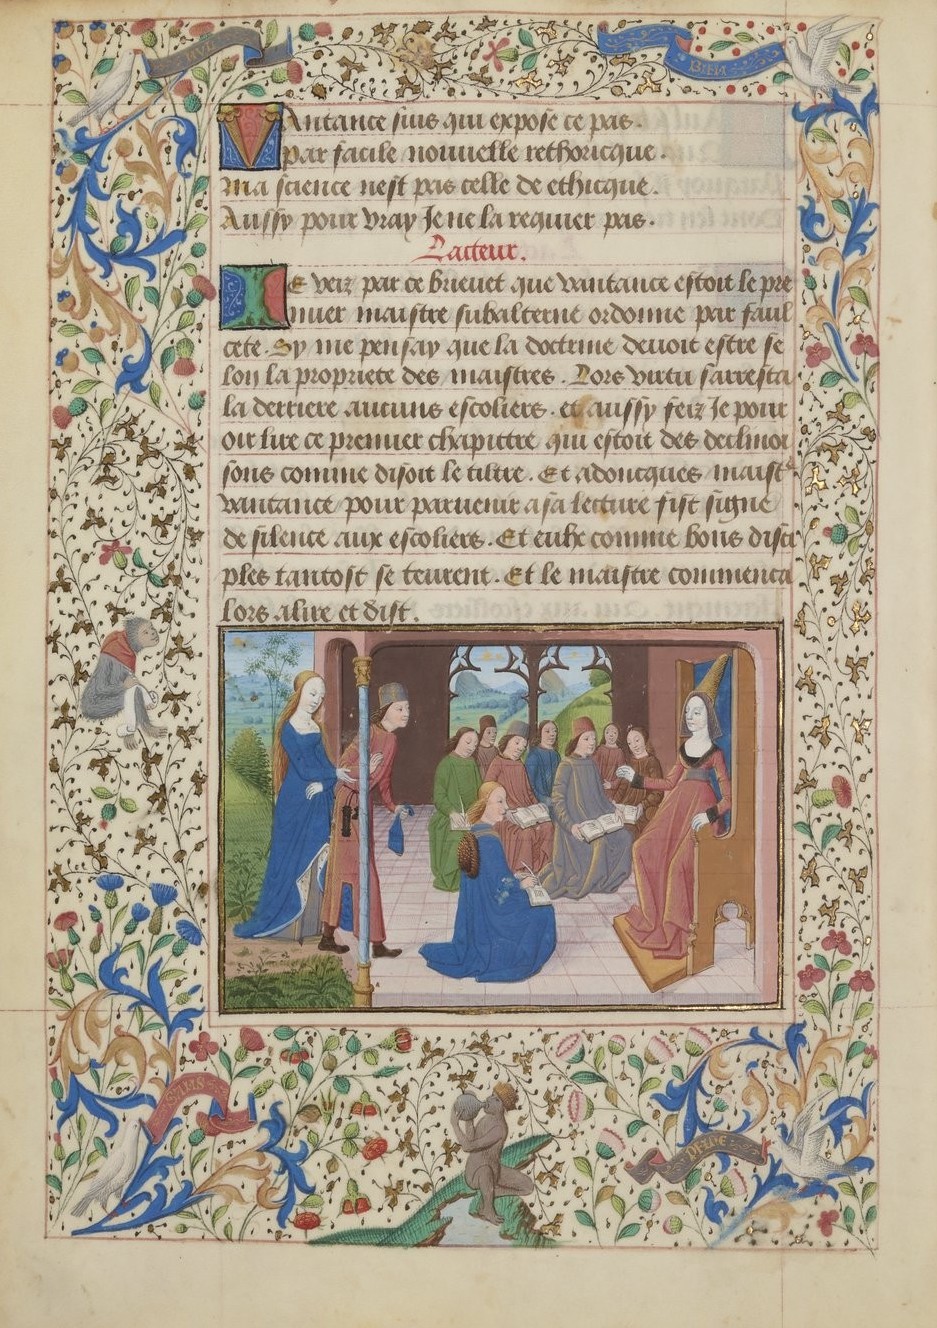 NUL
BIEN
Vantance suis qui expose ce pas.
Par facile nouuelle rethoricque.
Ma science nest pas celle de ethicque.
Aussy pour vray Je ne la requier pas.
Lacteur.
Je veiz par ce brieuet que vantance estoit le pre
mier maistre subalterne ordonne par faul
cete. Sy me pensay que la doctrine deuoit estre se
lon la propriete des maistres. Lors vertu sarresta
la derriere aucuns escoliers. et aussy feiz Je pour
oir lire ce premier chapittre qui estoit des declinoi
sons comme disoit le tiltre. Et adoncques maistre
vantance pour paruenir a sa lecture fist signe
de silence aux escoliers. Et eulx comme bons disci
ples tantost se teurent. Et le maistre commenca
lors a lire et dist.
SANS
PEINE